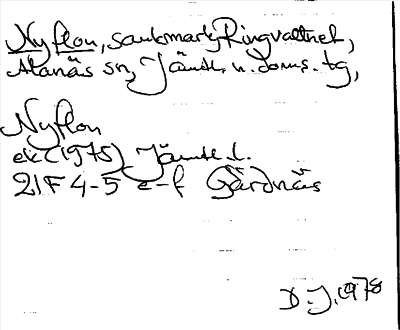 Nyflon, sankmark, Ringvattnet,
Alanäs sn, Jämtl. n. doms. tg,
Nyflon
ek (1975) Jämtl. l.
21F 4-5 e-f Gärdnäs
D. J. 1978